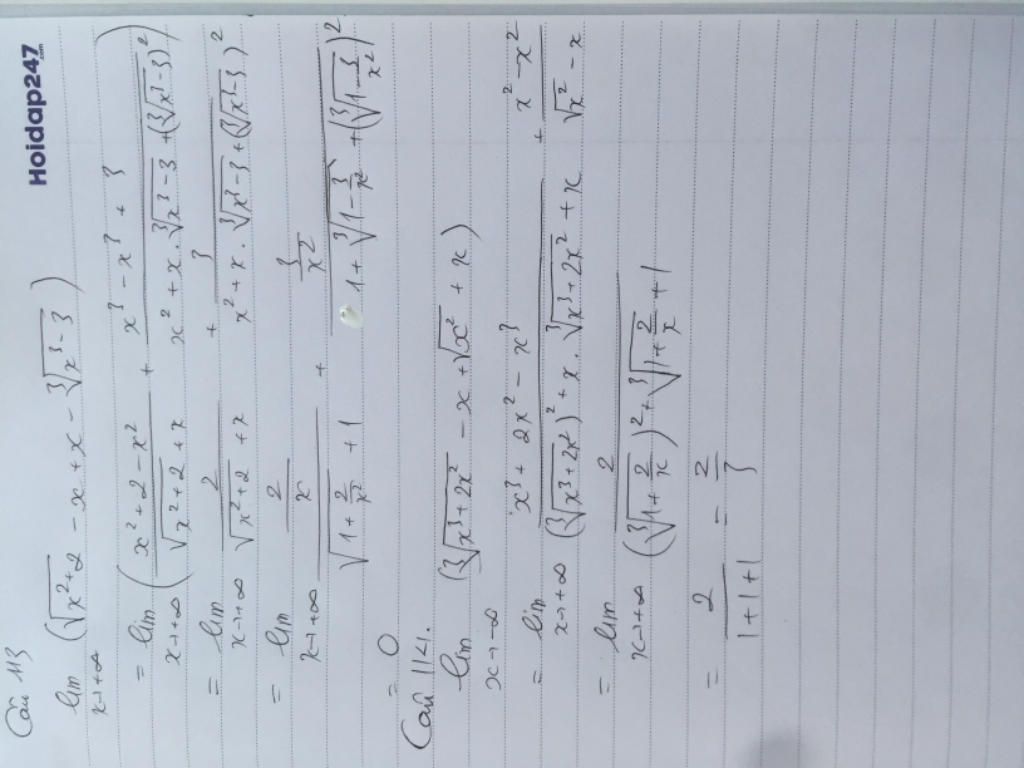 Hoidap247.com
Câu 113
lim x→+∞ (√(x²+2) - x + x - ∛(x³-3))
= lim x→+∞ ( (x²+2-x²)/(√(x²+2) + x) + (x³-x³+3)/(x²+x.∛(x³-3) + (∛(x³-3))²) )
= lim x→+∞ 2/(√(x²+2) + x) + 3/(x²+x.∛(x³-3) + (∛(x³-3))²)
= lim x→+∞ (2/x)/(√(1+2/x²) + 1) + (3/x²)/(1+∛(1-3/x³) + (∛(1-3/x³))²)
= 0
Câu 114.
lim x→-∞ (∛(x³+2x²) - x + √(x²) + x)
= lim x→+∞ (x³+2x²-x³)/((∛(x³+2x²))² + x.∛(x³+2x²) + x²) + (x²-x²)/(√(x²) - x)
= lim x→+∞ 2/((∛(1+2/x))² + ∛(1+2/x) + 1)
= 2/(1+1+1) = 2/3